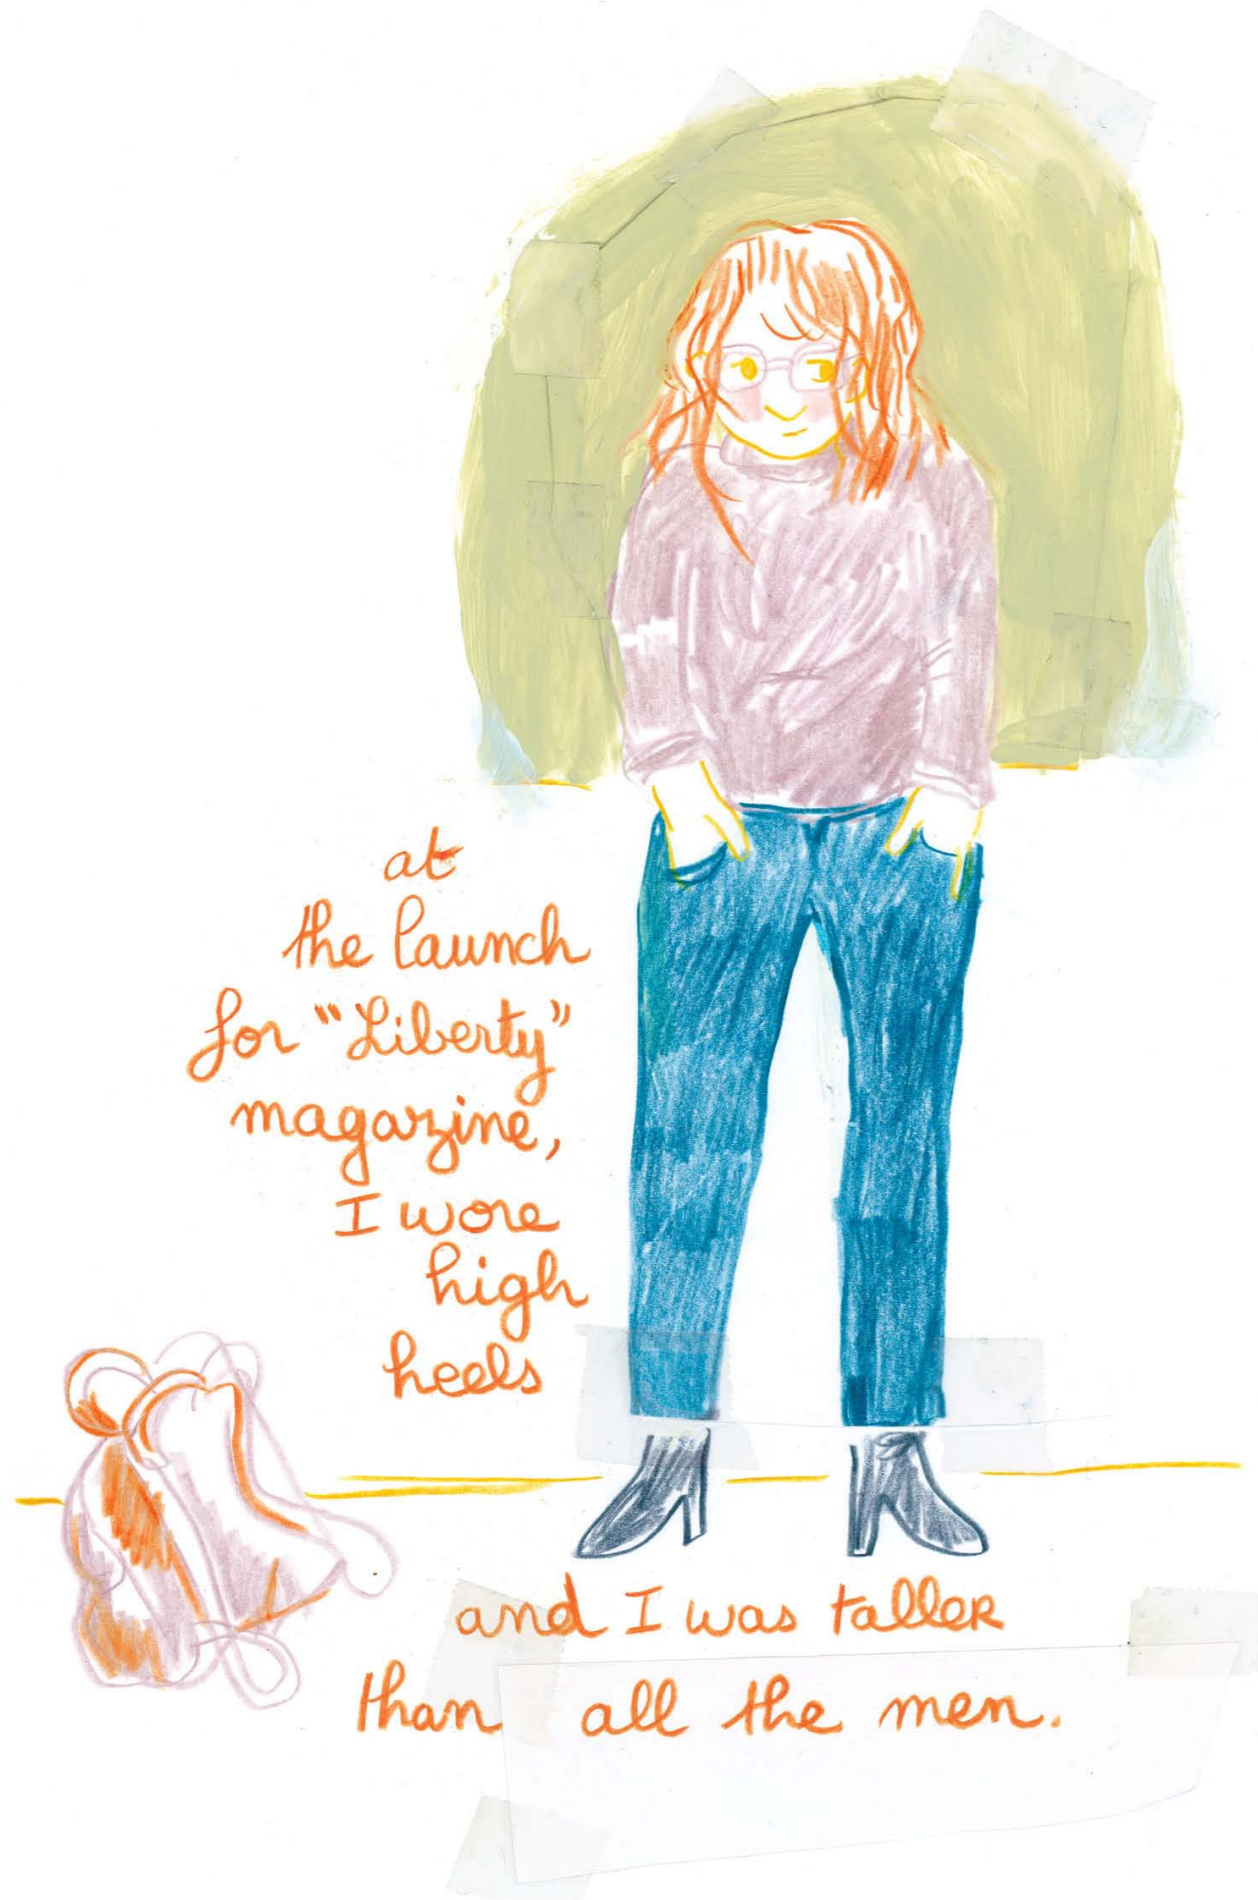 at
the launch
for "Liberty"
magazine,
I wore
high
heels
and I was taller
than all the men.